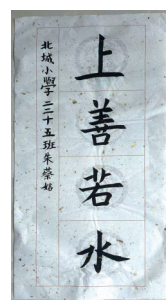 上善若水
北城小學 二二十五班 朱蒙姑